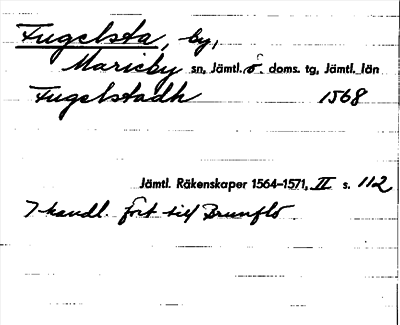 Fugelsta, by,
Marieby sn, Jämtl. ö. doms. tg, Jämtl. län
Fugelstadh 1568
Jämtl. Räkenskaper 1564–1571, II s. 112
I handl. fört till Brunflo